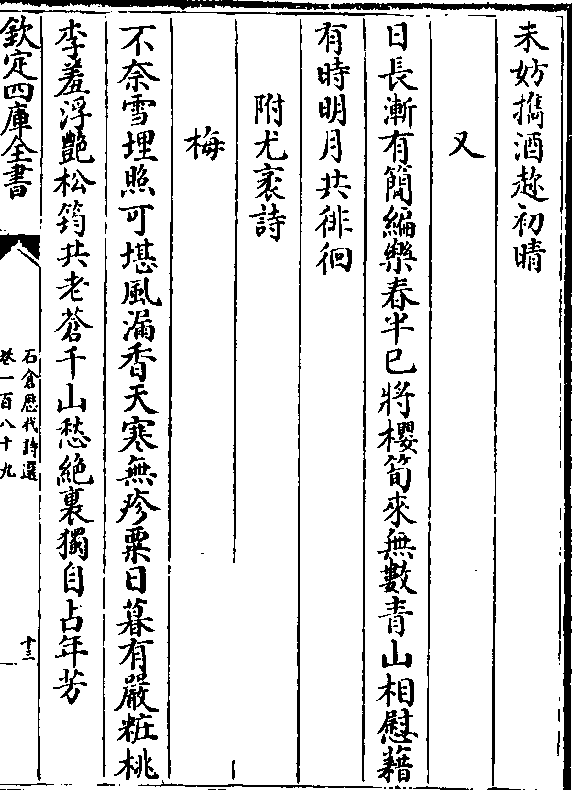 未妨擕酒趂初晴
又
日長漸有簡編樂春半已將櫻筍來無數青山相慰藉
有時明月共徘徊
附尤袤詩
梅
不奈雪埋照可堪風漏香天寒無疹粟日暮有嚴粧桃
李羞浮艶松筠共老蒼千山愁絶裏獨自占年芳
欽定四庫全書
石倉歴代詩選
卷一百八十九
十三